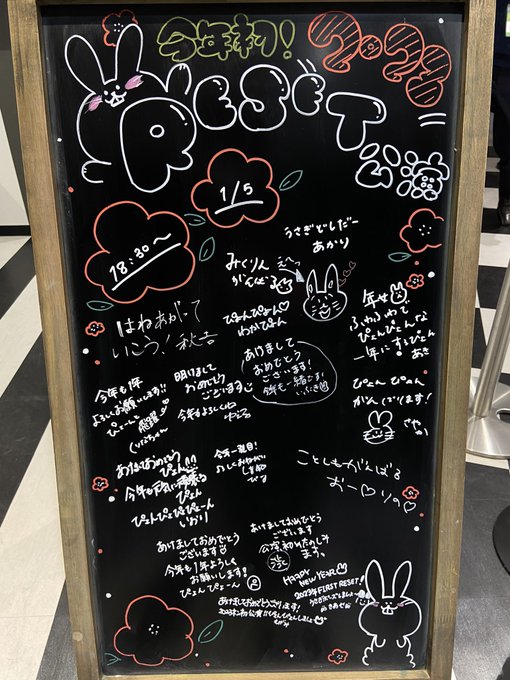 今年初! 2023
RESET
公演
1/5
18:30～
うさぎどしだー
あかり
みくりん
がんばる
ぴょんぴょん♡
わかぴょん
はねあがって
いこう! 秋吉
ふわふわで
ぴょんぴょんな
一年にするぴょん
あき
あけまして
おめでとう
ございます!
今年も一緒に
明けまして
おめでとう
ございます
今年もよろしくね
今年も1年
よろしくお願いします!!
ぴょーんと
飛躍
ぴょん ぴょん
がんばります!
あけおめとう
ぴょん
今年も元気に
ぴょん
ぴょんぴょんぴょーん
いおり
今年一発目!
ことしもがんばる
おー♡りの♡
あけましておめでとう
ございます
今年も1年よろしく
お願いします!
ぴょんぴょーん
あけましておめでとう
ございます
公演初めたのしみ
ます。
HAPPY
NEW YEAR
2023年FIRST RESET!
あけましておめでとうござります!